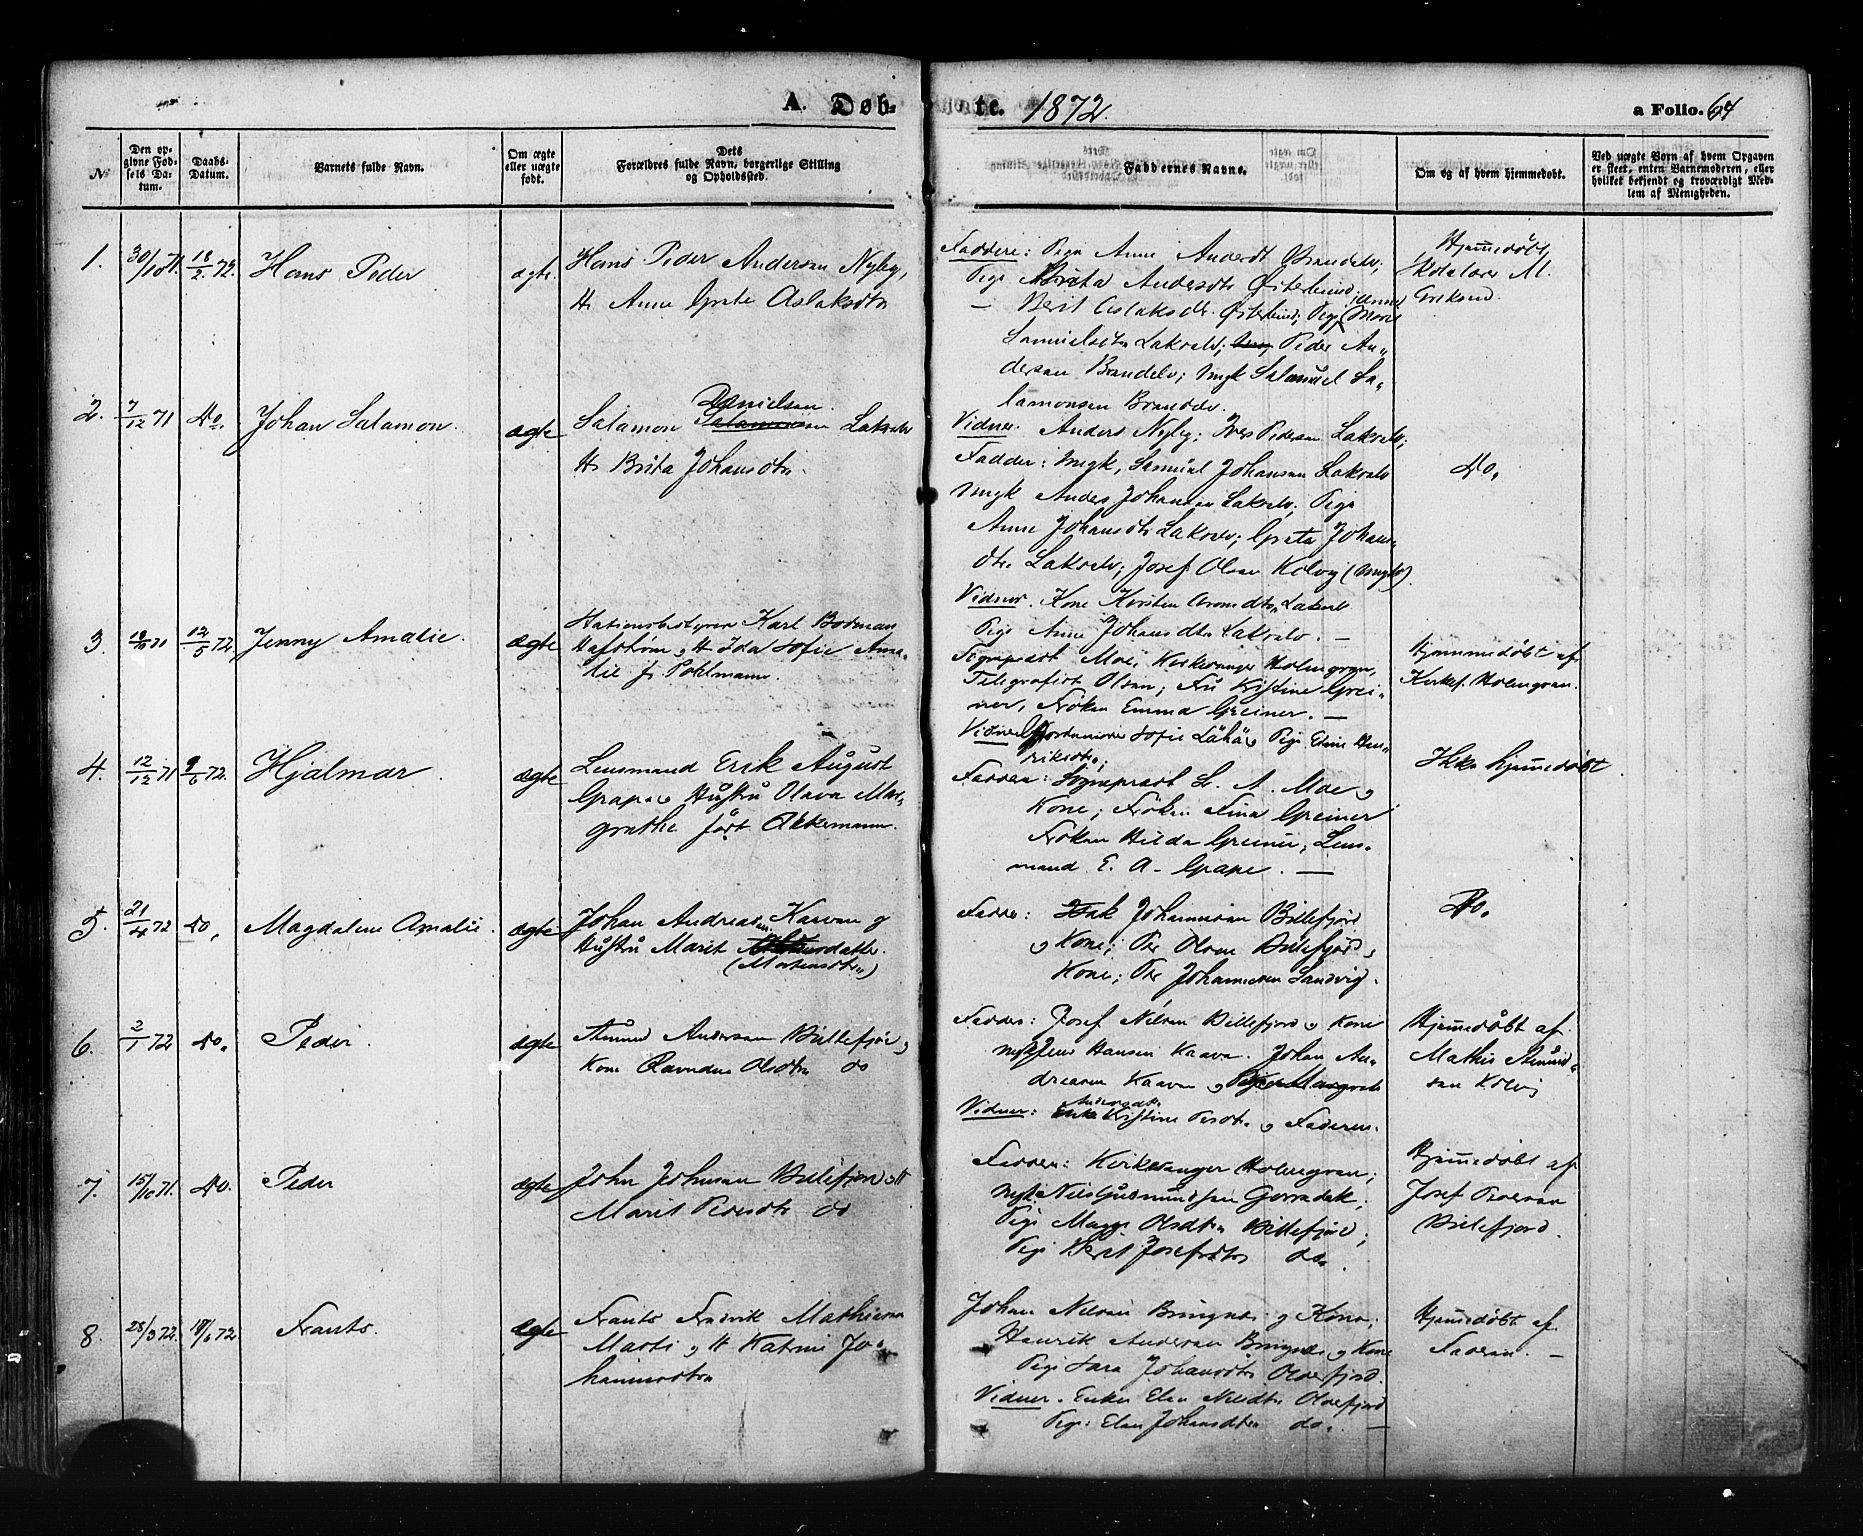 A. Døb- te. 1872. a Folio. 64
No
Den opgivne Fødsels Datum.
Daabs-Datum.
Barnets fulde Navn.
Om ægte eller uægte født.
Dets Forældres fulde Navn, borgerlige Stilling og Opholdssted.
Faddernes Navne.
Om og af hvem hjemmedøbt.
Ved uægte Børn af hvem Opgaven er skeet, enten Barnemoderen, eller hvilket bekjendt og troværdigt Medlem af Menigheden.
1. 30/10 71. 18/2 72. Hans Peder ægte.
Hans Peder Andersen Nyby,
H. Anne Grete Aslaksdtr
Faddere: Pige Anne Andersdt Brandelv;
Pige Brita Andersdtr Østerbund
— Berit Aslaksdr. Østerbund; Pige Marit
Samuelsdtr Lakselv; Peder An-
dersen Brandelv; Ungk Salamon Sa-
lamonsen Brandelv.
Vidner. Anders Nyby; Iver Pedersen Lakselv.
Hjemmedøbt,
Skolelærer M.
Eriksen.
2. 7/12 71 do. Johan Salamon. ægte
Danielsen.
Salamon Salamonsen Lakselv
H. Brita Johansdtr.
Fadder: Ungk, Samuel Johansen Lakselv
Ungk Anders Johansen Lakselv; Pige
Anne Johansdtr Lakselv; Greta Johans-
dtr. Lakselv; Josef Olsen Kolvig (Ungk).
Vidner. Kone Kirsten Amundtr Lakselv
Pige Anne Johansdtr Lakselv. —
do.
3. 71 12/5 72 Jenny Amalie. ægte
Stationsbestyrer Karl Bodman
Hafstrøm og H Ida Sofie Ama-
lie f. Pohlmann.
Sognepræst Moe, Kirkesanger Holmgren,
Telegrafist Olsen, Fru Kristine Grei-
ner, Frøken Emma Greiner. —
Vidner Jordemoder Sofie Pige Eline Hen-
riksdtr;
Hjemmedøbt af
Kirkes. Holmgren.
4. 12/12 71 9/6 72. Hjalmar. ægte
Lensmand Erik August
Grape og Hustru Olava Mar-
grethe født Akkermann.
Faddere: Sognepræst L. A. Moe og
Kone; Frøken Fina Greiner
Frøken Hilda Greiner; Lens-
mand E. A. Grape. —
Ikke hjemmedøbt
5. 21/4 72 do. Magdalene Amalie. ægte
Johan Andreassen Kaaven og
Hustru Marit
(Mortensdtr)
Faddre: Isak Johannesen Billefjord
og Kone; Per Olsen Billefjord og
Kone; Per Johannesen Sandvig.
do.
6. 2/1 72 do. Peder. ægte
Amund Andersen Billefjor og
Kone Ravndna Olsdtr do
Fadder: Josef Nilsen Billefjord og Kone
Ungk Jens Hansen Kaaven. Johan An-
dreasen Kaaven og
Vidner: Kristine Persdtr og Faderen.
Hjemmedøbt af
Mathis Amund-
sen Kolvig
7. 15/10 71. do. Peder ægte
John Johnsen Billefjord og H
Marit Pedersdtr do
Faddere: Kirkesanger Holmgren;
Ungk Nils Gudmundsen Gorradak;
Pige Magga Olsdtr Billefjord;
Pige Berit Josefsdtr do.
Hjemmedøbt af
Josef Pedersen
Billefjord.
8. 28/3 72. 10/6 72. Frants. ægte
Frants Fredrik Mathiesen
Marti og H Katrine Jo-
hannesdtr
Johan Nilsen Bringnes og Kone;
Henrik Andersen Bringnes og Kone
Pige Sara Johansdtr Olderfjord.
Vidner. Enke Elen Nilsdtr Olderfjord
Pige: Elen Johansdtr do. —
Hjemmedøbt af
Faderen. —